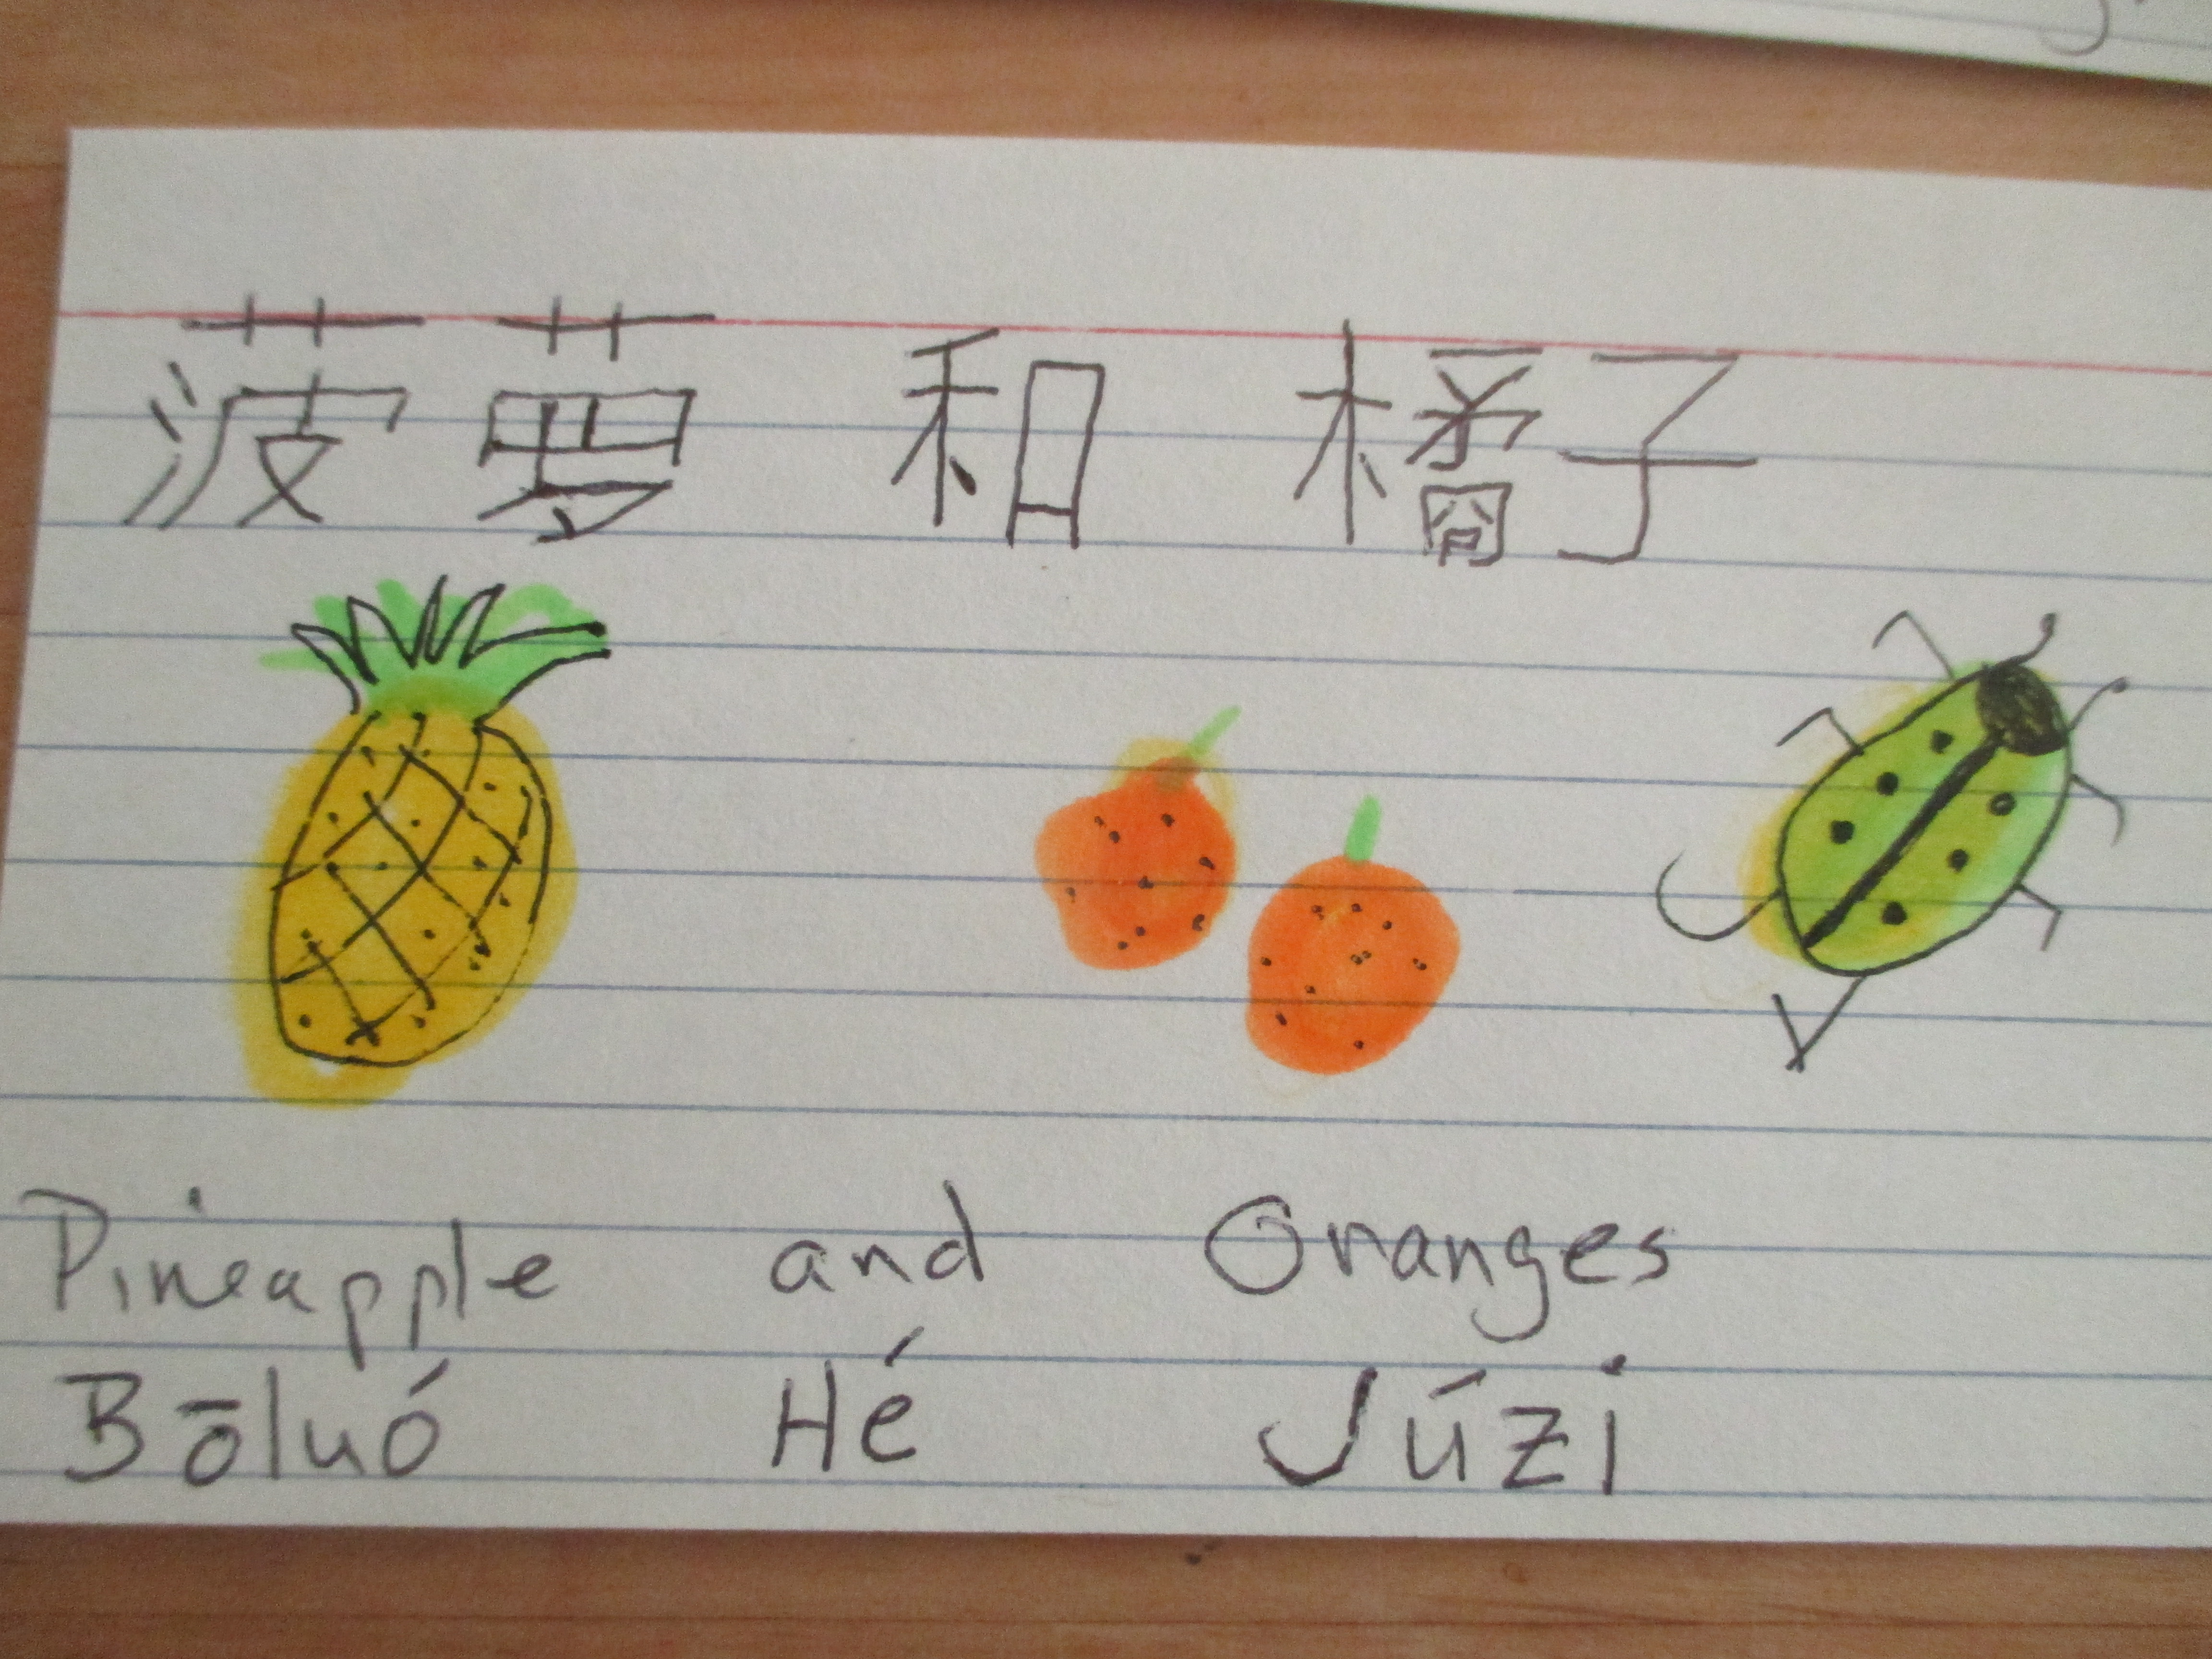 菠萝 和 橘子
Pineapple and Oranges
Bōluó Hé Júzi